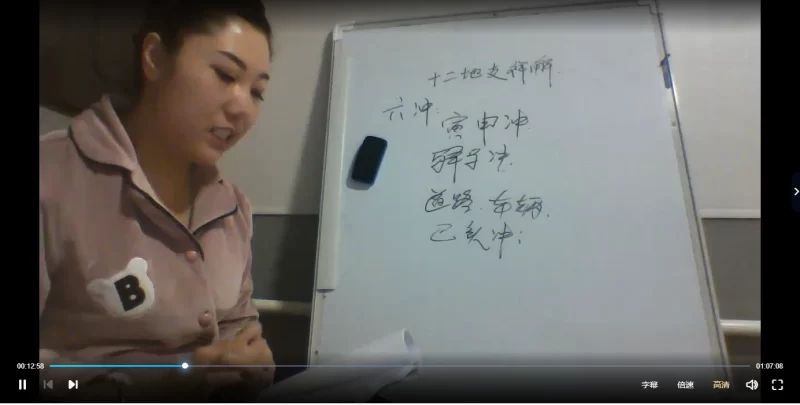 十二地支详解
六冲:
寅申冲
驿马冲
道路、车辆
巳亥冲:
B
00:12:58
01:07:08
字幕 倍速 高清